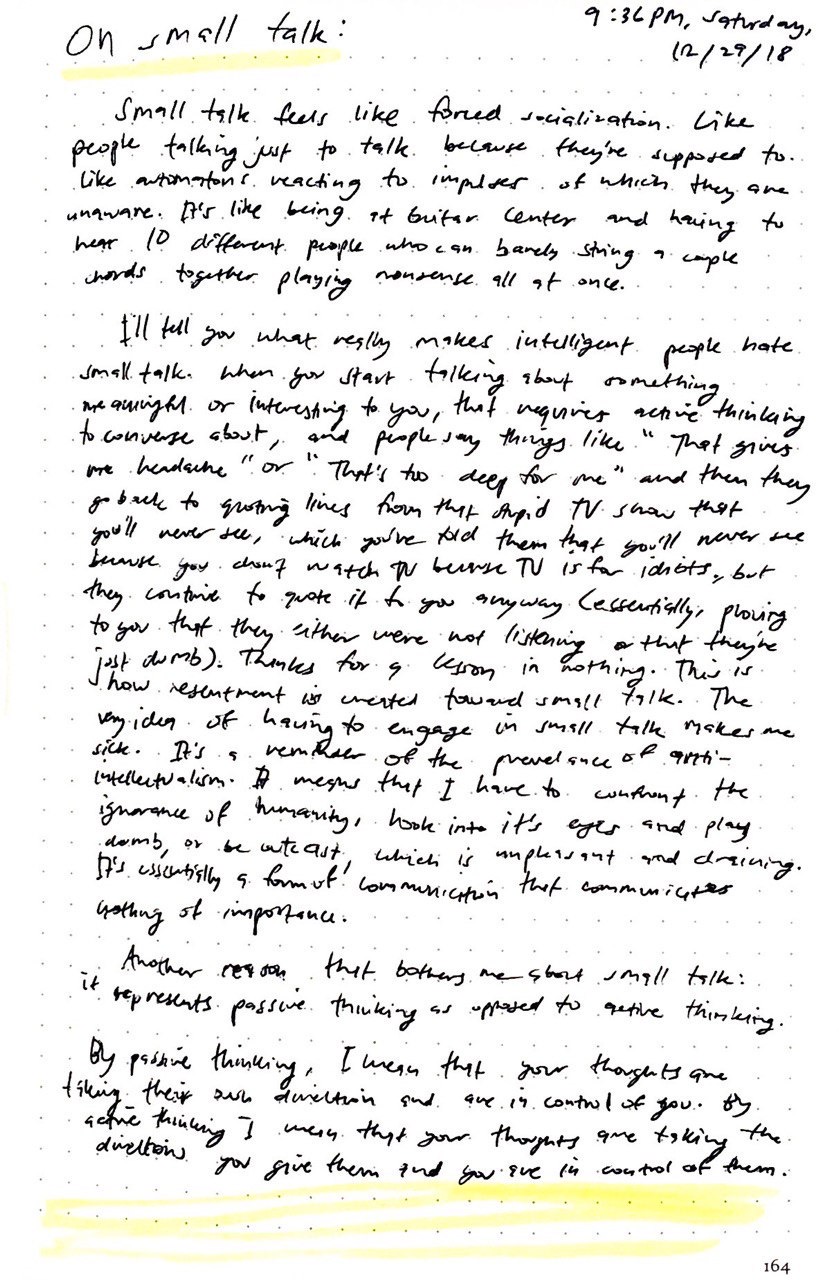 On small talk:
9:36PM, Saturday,
12/29/18
Small talk feels like forced socialization. Like
people talking just to talk because they're supposed to.
Like automatons reacting to impulses of which they are
unaware. It's like being at Guitar Center and having to
hear 10 different people who can barely string a couple
chords together playing nonsense all at once.
I'll tell you what really makes intelligent people hate
small talk. When you start talking about something
meaningful or interesting to you, that requires active thinking
to converse about, and people say things like "That gives
me headache" or "That's too deep for me" and then they
go back to quoting lines from that stupid TV show that
you'll never see, which you've told them that you'll never see
because you don't watch TV because TV is for idiots, but
they continue to quote it to you anyway (essentially, proving
to you that they either were not listening or that they're
just dumb). Thanks for a lesson in nothing. This is
how resentment is created toward small talk. The
very idea of having to engage in small talk makes me
sick. It's a reminder of the prevelance of anti-
intellectualism. It means that I have to confront the
ignorance of humanity, look into it's eyes and play
dumb, or be outcast, which is unpleasant and draining.
It's essentially a form of communication that communicates
nothing of importance.
Another reason that bothers me about small talk:
it represents passive thinking as opposed to active thinking.
By passive thinking, I mean that your thoughts are
taking their own direction and are in control of you. By
active thinking I mean that your thoughts are taking the
direction you give them and you are in control of them.
164